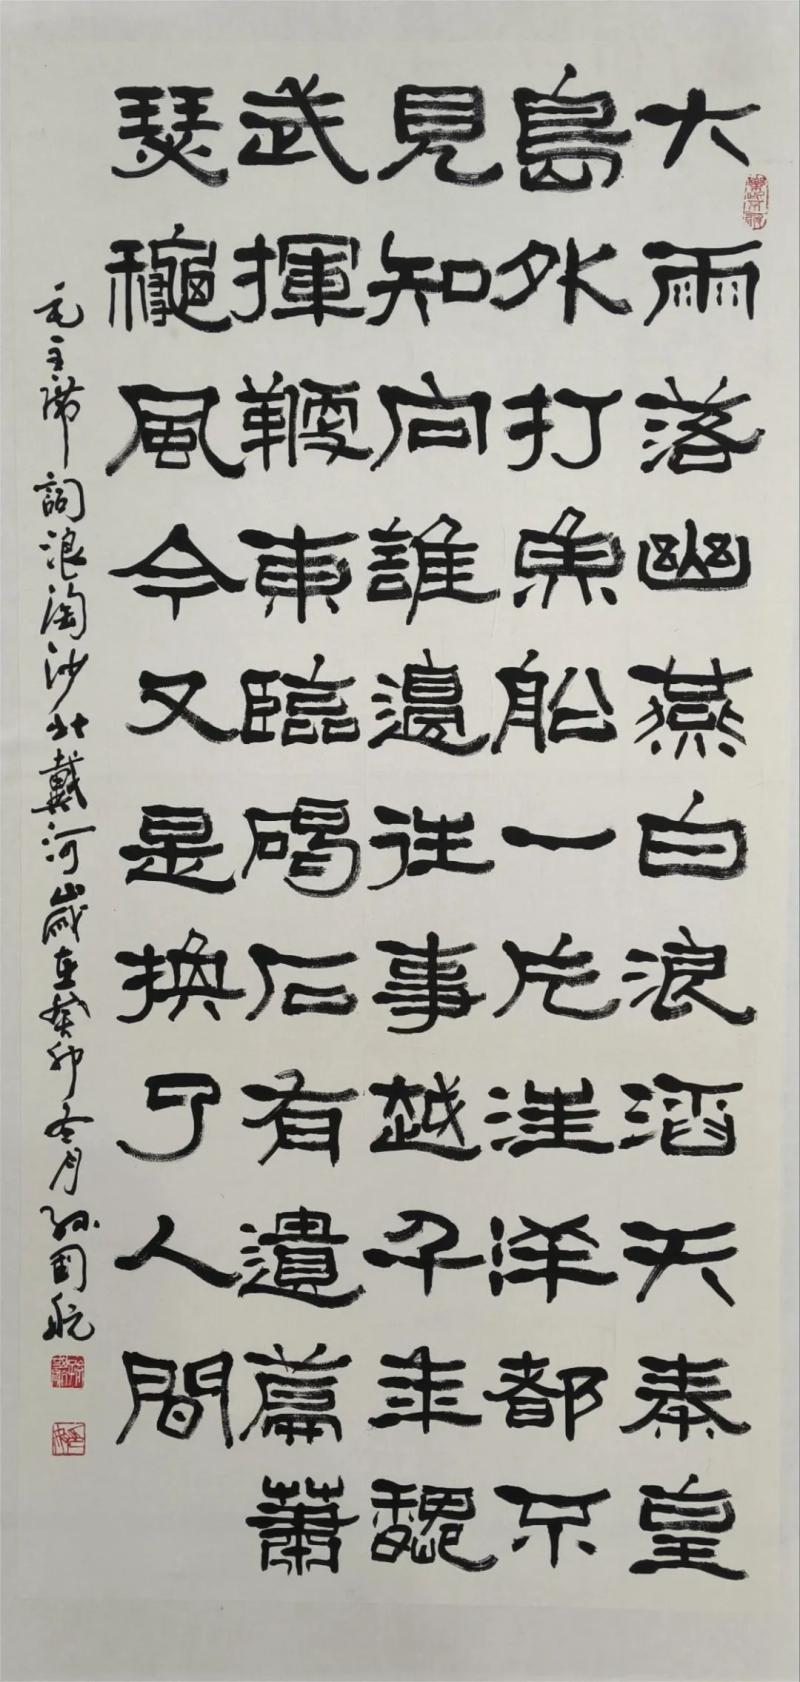 大雨落幽燕白浪滔天秦皇
島外打魚船一片汪洋都不
見知向誰邊往事越千年魏
武揮鞭東臨碣石有遺篇蕭
瑟龝風今又是換了人間
毛主席詞浪淘沙北戴河歲在癸卯冬月孫国航